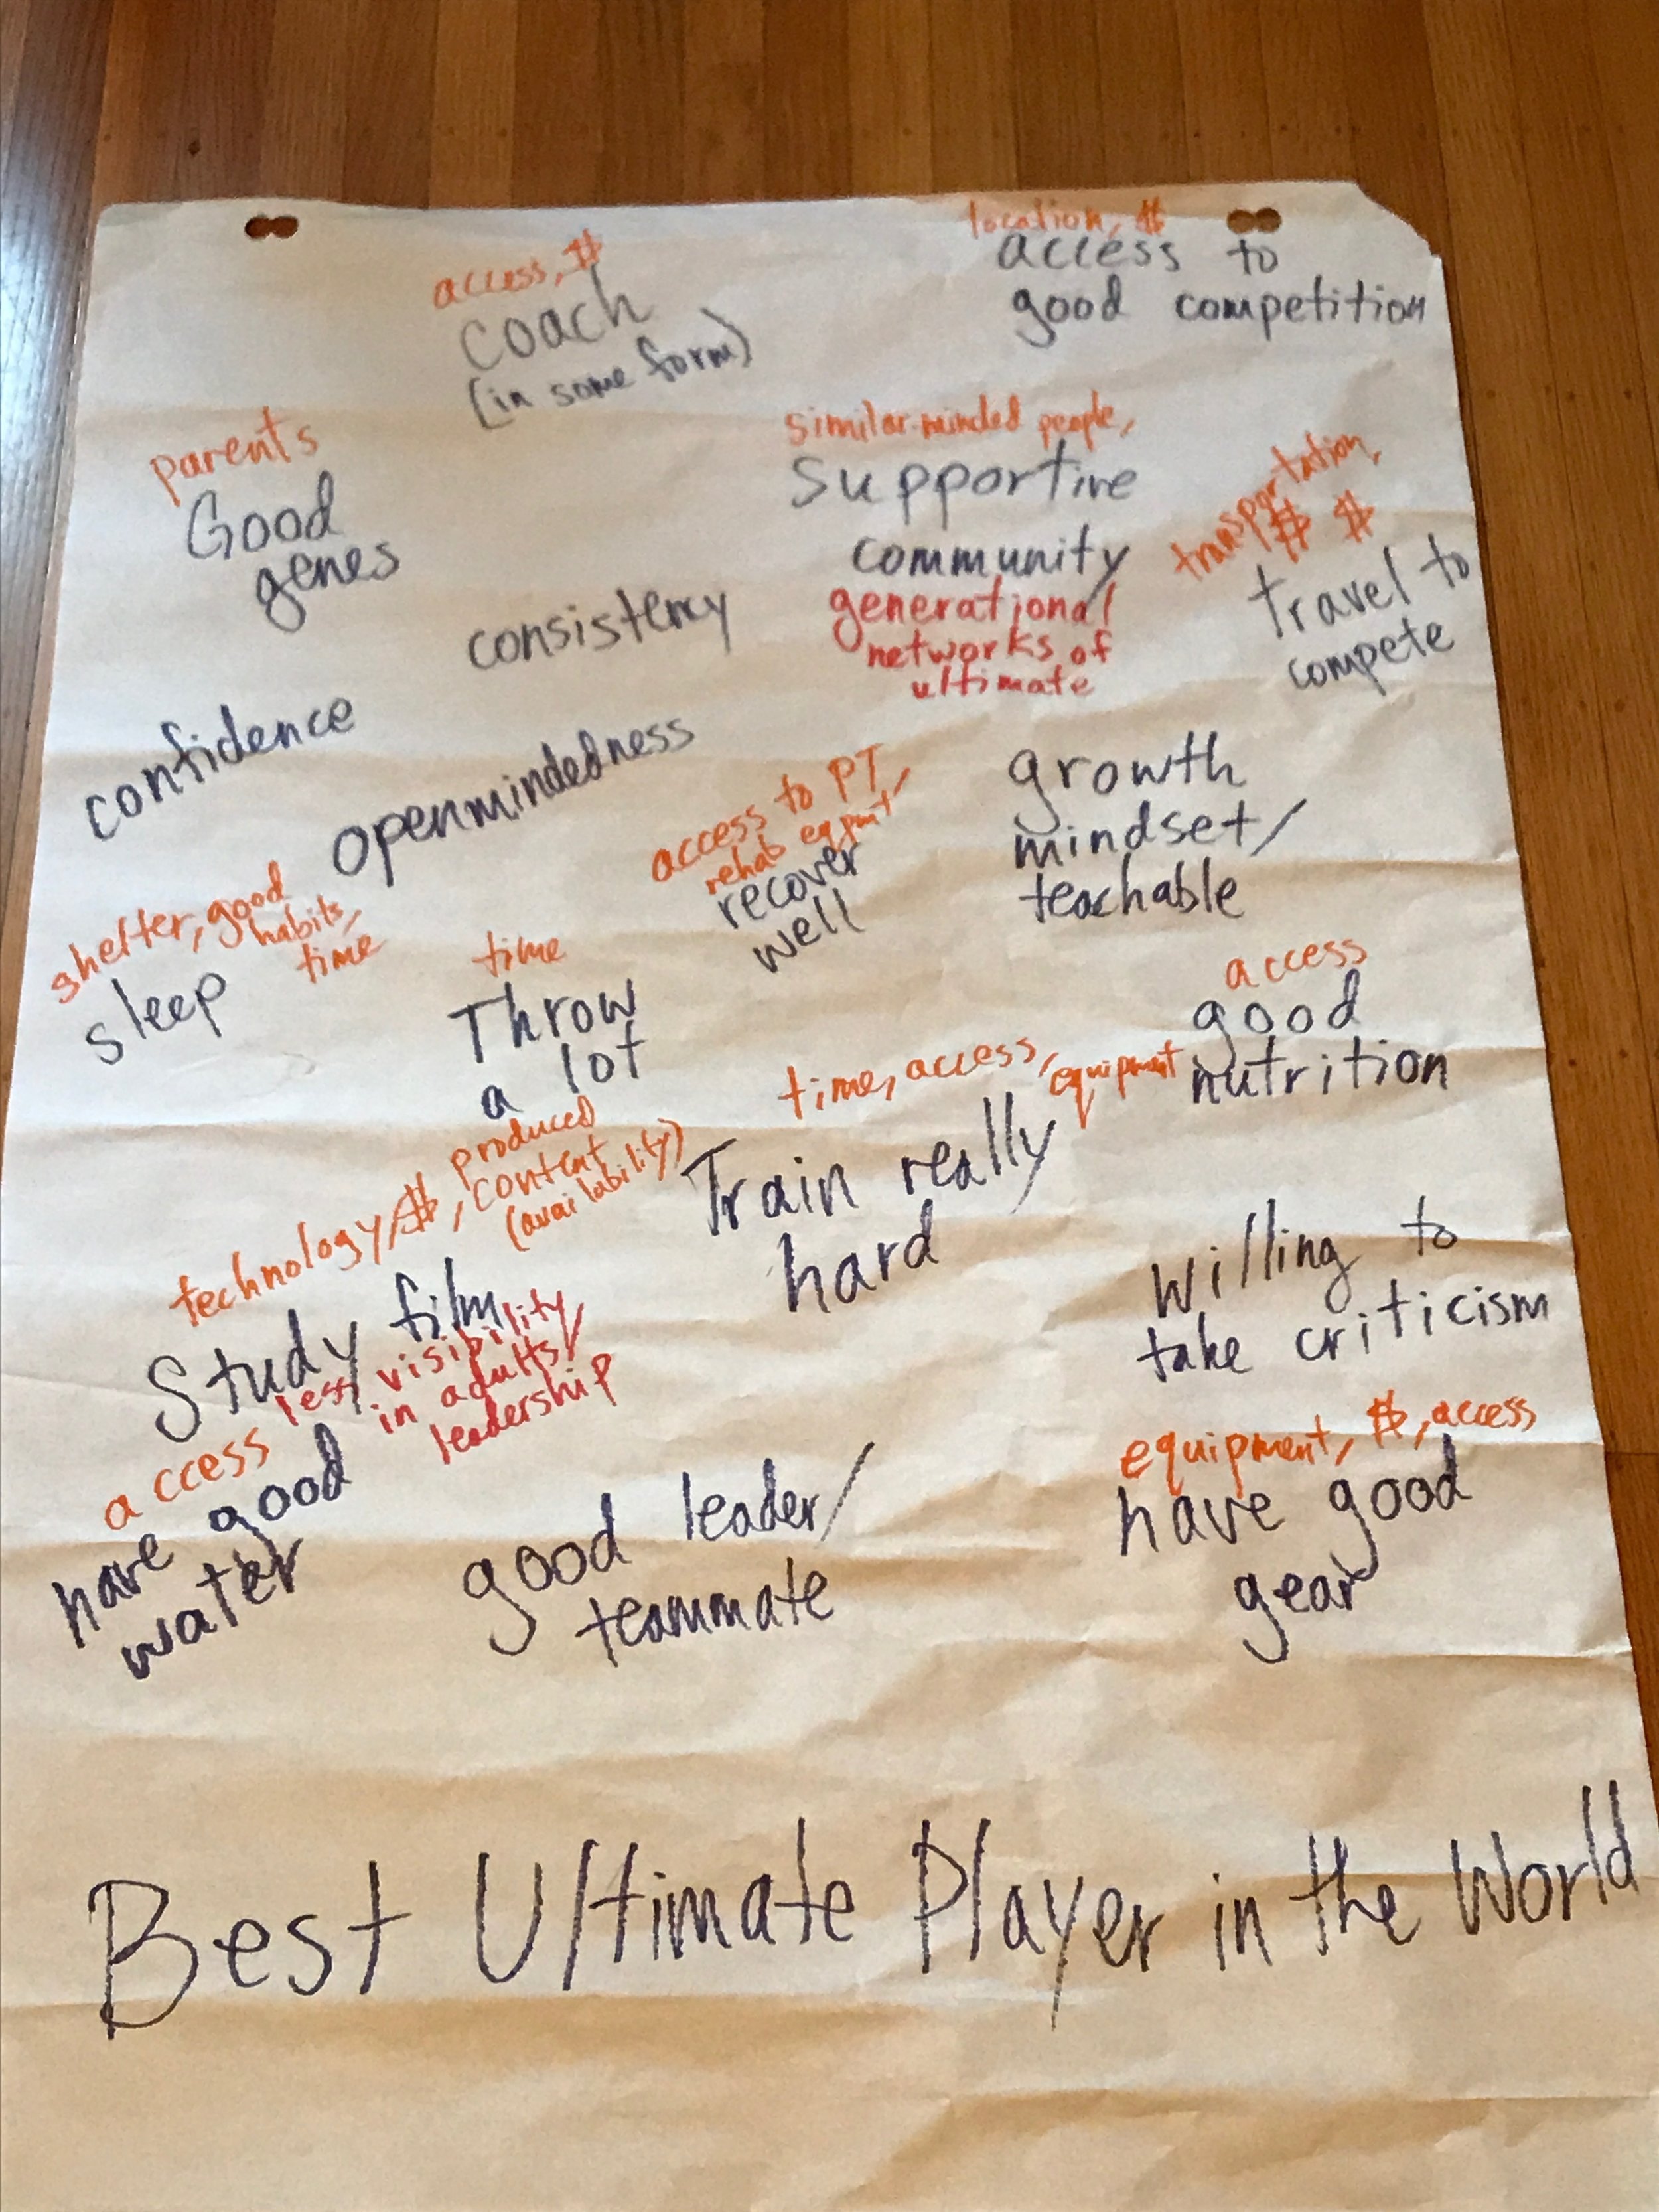 location, $
access to
good competition
access, $
coach
(in some form)
parents
Good
genes
similar-minded people,
supportive
community
generational
networks of
ultimate
transportation,
$ $
travel to
compete
consistency
confidence
openmindedness
access to PT,
rehab eqpmt,
recover
well
growth
mindset/
teachable
shelter, good
habits,
time
sleep
time
Throw
a lot
access
good
nutrition
time, access, equipment
Train really
hard
technology, $, produced
content
(availability)
Study film
less visibility
in adults/
leadership
willing to
take criticism
access
have good
water
good leader/
teammate
equipment, $, access
have good
gear
Best Ultimate Player in the World